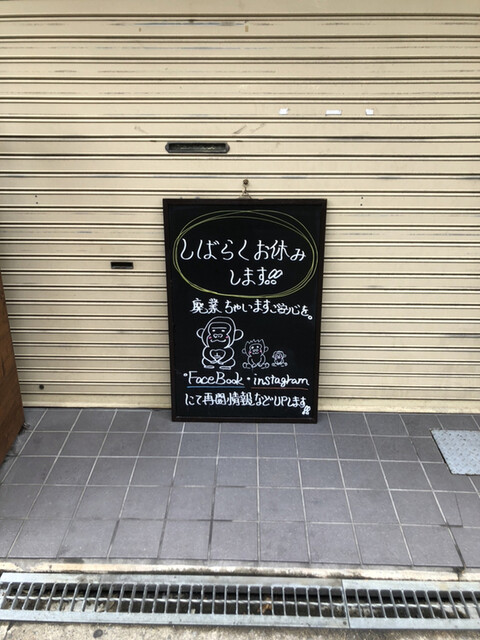 しばらくお休み
します!!
廃業ちゃいますご安心を。
・FaceBook・instagram
にて再開情報などUPします!!